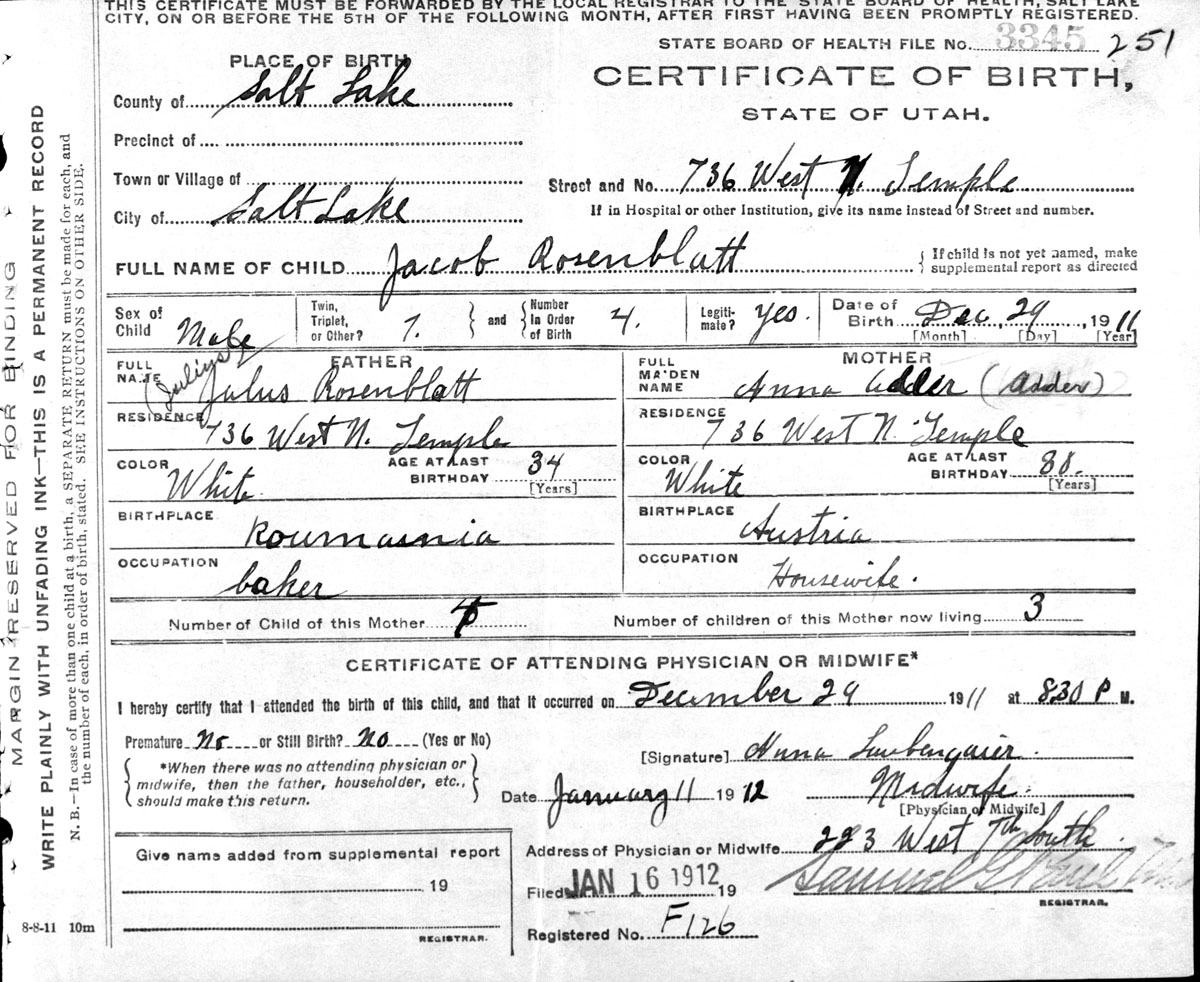 THIS CERTIFICATE MUST BE FORWARDED BY THE LOCAL REGISTRAR TO THE STATE BOARD OF HEALTH, SALT LAKE
CITY, ON OR BEFORE THE 5TH OF THE FOLLOWING MONTH, AFTER FIRST HAVING BEEN PROMPTLY REGISTERED.
STATE BOARD OF HEALTH FILE No. 3345 251
PLACE OF BIRTH
CERTIFICATE OF BIRTH,
County of Salt Lake
STATE OF UTAH.
Precinct of
Town or Village of
Street and No. 736 West N. Temple
City of Salt Lake
If in Hospital or other Institution, give its name instead of Street and number.
FULL NAME OF CHILD Jacob Rosenblatt { If child is not yet named, make
supplemental report as directed
Sex of Child Male
Twin, Triplet, or Other? 1. } and { Number In Order of Birth 4.
Legiti-mate? Yes.
Date of Birth Dec, 29, 1911
[Month] [Day] [Year]
FATHER
FULL NAME (Julius) Julus Rosenblatt
MOTHER
FULL MAIDEN NAME Anna Adler (Adder)
RESIDENCE 736 West N. Temple
RESIDENCE 736 West N. Temple
COLOR White AGE AT LAST BIRTHDAY 34 [Years]
COLOR White AGE AT LAST BIRTHDAY 38. [Years]
BIRTHPLACE Roumasnia
BIRTHPLACE Austria
OCCUPATION baker
OCCUPATION Housewife.
Number of Child of this Mother 4
Number of children of this Mother now living 3
CERTIFICATE OF ATTENDING PHYSICIAN OR MIDWIFE*
I hereby certify that I attended the birth of this child, and that it occurred on December 29 1911 at 830 P M.
Premature No or Still Birth? No (Yes or No)
[Signature] Anna
{ *When there was no attending physician or
midwife, then the father, householder, etc.,
should make this return. }
Date January 11 1912 Midwife.
[Physician or Midwife]
Address of Physician or Midwife 223 West 7th South
Give name added from supplemental report
19
REGISTRAR.
Filed JAN 16 1912 19 Samuel G Paul
REGISTRAR.
Registered No. F126
8-8-11 10m
MARGIN RESERVED FOR BINDING
WRITE PLAINLY WITH UNFADING INK—THIS IS A PERMANENT RECORD
N. B.—In case of more than one child at a birth, a SEPARATE RETURN must be made for each, and
the number of each, in order of birth, stated. SEE INSTRUCTIONS ON OTHER SIDE.